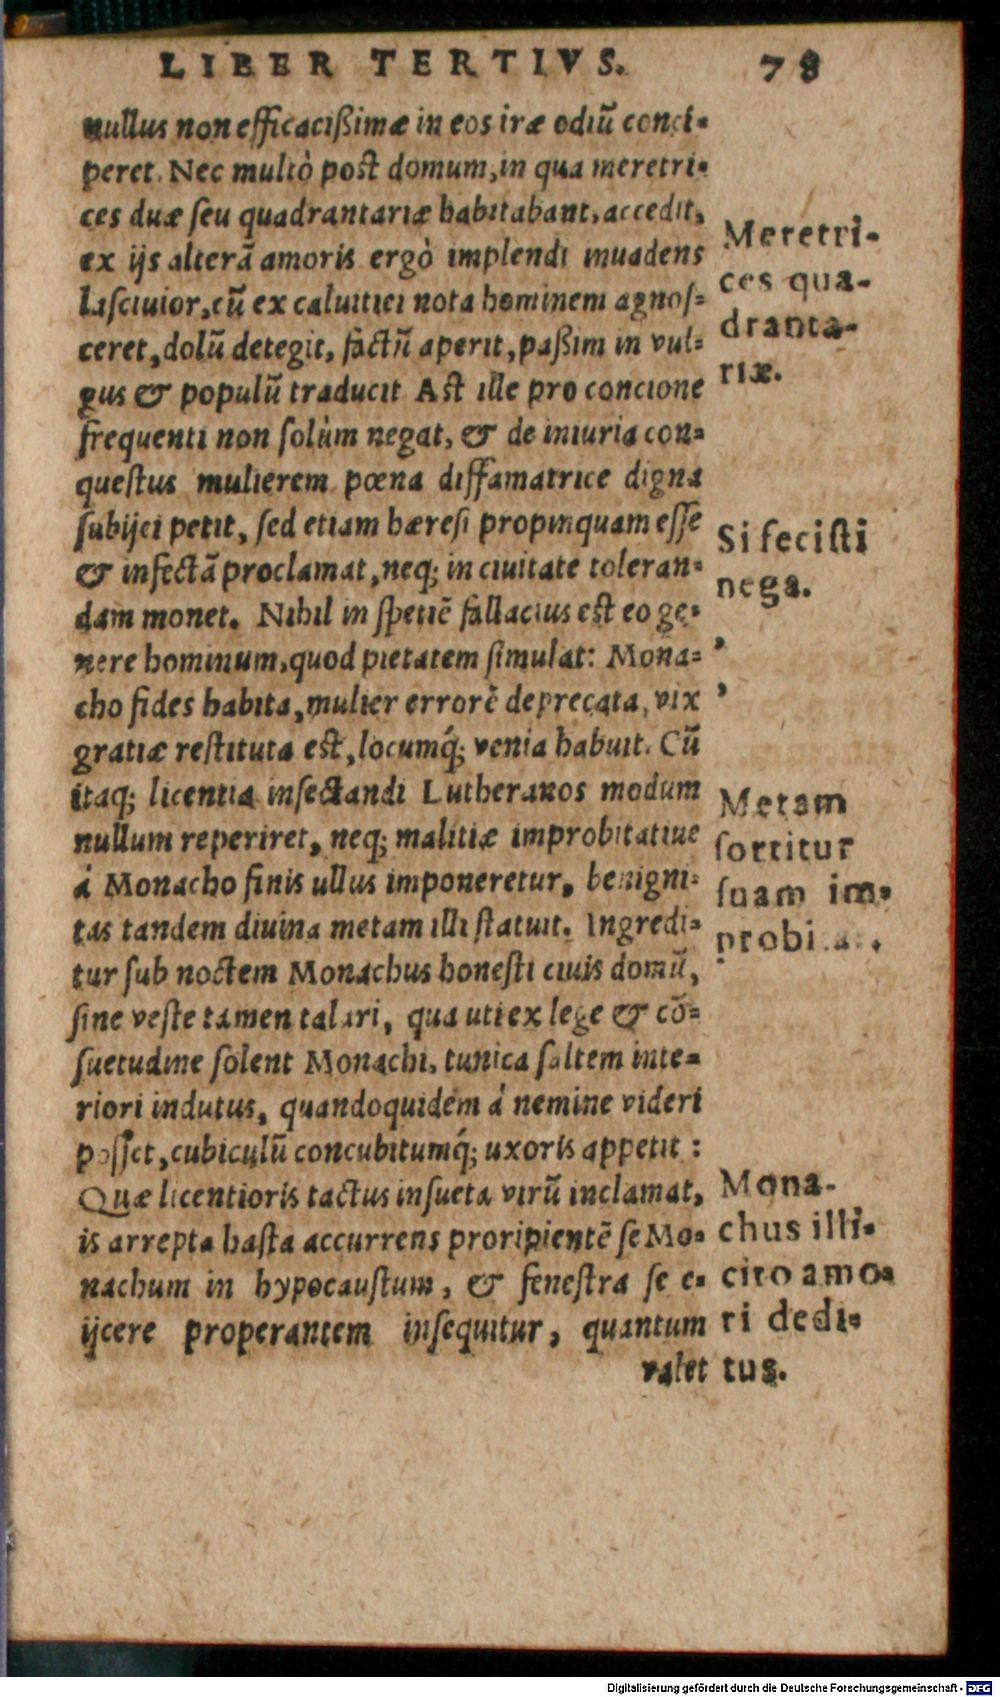 LIBER TERTIVS. 78
nullus non efficacißimæ in eos iræ odiũ conci-
peret. Nec multò post domum, in qua meretri-
ces duæ seu quadrantariæ habitabant, accedit,
ex ijs alterã amoris ergò implendi inuadens
lasciuior, cũ ex caluitiei nota hominem agnos-
ceret, dolũ detegit, factũ aperit, paßim in vul-
gus & populũ traducit Ast ille pro concione
frequenti non solùm negat, & de iniuria con-
questus mulierem pœna diffamatrice digna
subijci petit, sed etiam hæresi propinquam esse
& infectã proclamat, neq; in ciuitate toleran-
dam monet. Nihil in spetiẽ fallacius est eo ge-
nere hominum, quod pietatem simulat: Mona-
cho fides habita, mulier errorẽ deprecata, vix
gratiæ restituta est, locumq́; venia habuit. Cũ
itaq; licentia insectandi Lutheranos modum
nullum reperiret, neq; malitiæ improbitatiue
á Monacho finis ullus imponeretur, benigni-
tas tandem diuina metam illi statuit. Ingredi-
tur sub noctem Monachus honesti ciuis domũ,
sine veste tamen talari, qua uti ex lege & cõ-
suetudine solent Monachi, tunica saltem inte-
riori indutus, quandoquidem á nemine videri
posset, cubiculũ concubitumq́; uxoris appetit:
Quæ licentioris tactus insueta virũ inclamat,
is arrepta hasta accurrens proripientẽ se Mo-
nachum in hypocaustum, & fenestra se e-
ijcere properantem insequitur, quantum
valet
Meretri-
ces qua-
dranta-
riæ.
Si fecisti
nega.
,
,
Metam
sortitur
suam im-
Mona-
chus illi-
cito amo-
ri dedi-
tus.
Digitalisierung gefördert durch die Deutsche Forschungsgemeinschaft - DFG